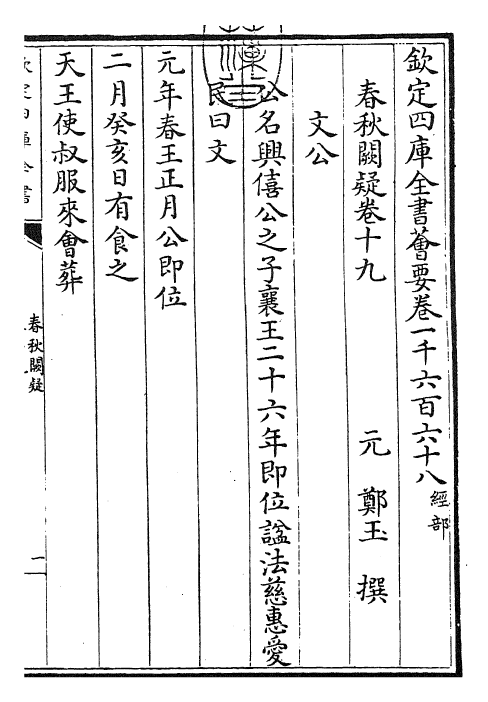 欽定四庫全書薈要卷一千六百六十八 經部
春秋闕疑卷十九 元 鄭玉 撰
文公
公名興僖公之子襄王二十六年即位諡法慈惠愛
民曰文
元年春王正月公即位
二月癸亥日有食之
天王使叔服來會葬
欽定四庫全書
春秋闕疑
一